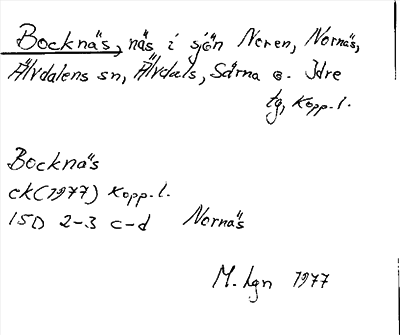 Bocknäs, näs i sjön Noren, Nornäs,
Älvdalens sn, Älvdals, Särna o. Idre
tg, Kopp.l.
Bocknäs
ck(1977) Kopp.l.
15D 2-3 c-d Nornäs
M. Lgn 1977